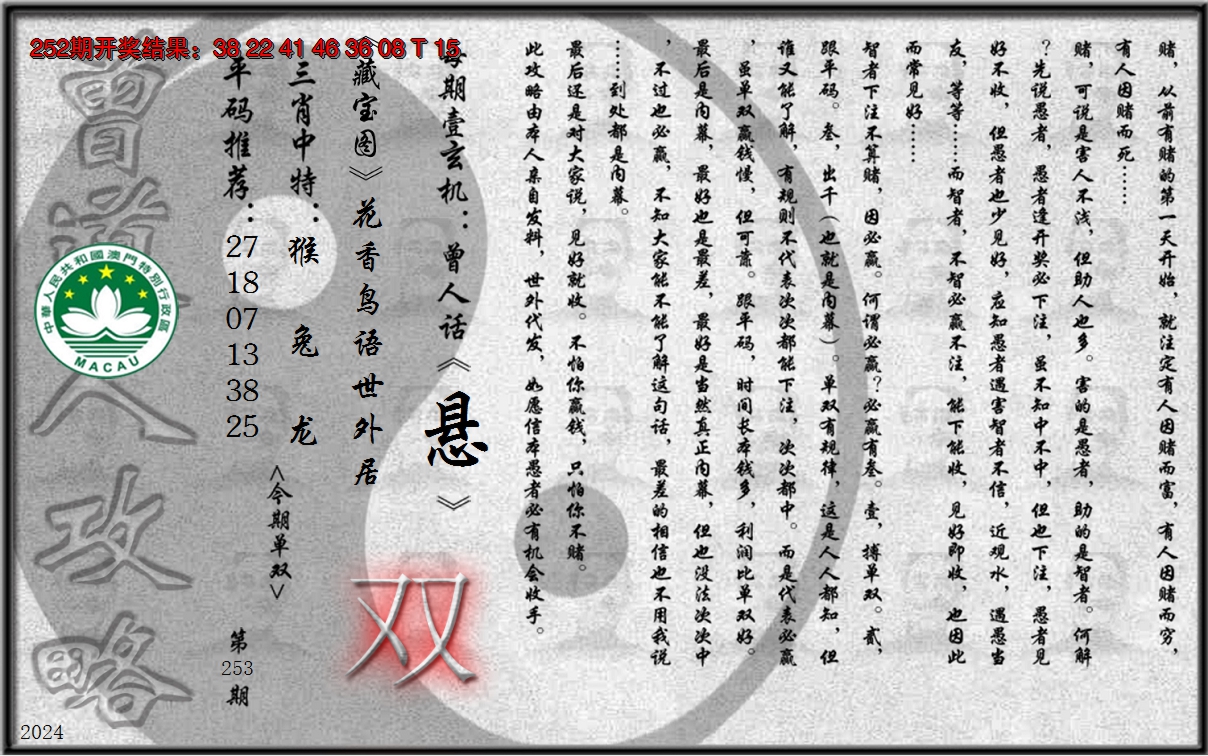 252期开奖结果：38 22 41 46 36 08 T 15
赌，从前有赌的第一天开始，就注定有人因赌而富，有人因赌而穷，
有人因赌而死……
赌，可说是害人不浅，但助人也多。害的是愚者，助的是智者。何解
？先说愚者，愚者逢开奖必下注，虽不知中不中，但也下注，愚者见
好不收，但愚者也少见好，应知愚者遇害智者不信，近观水，遇愚当
友，等等……而智者，不智必赢不注，能下能收，见好即收，也因此
而常见好……
智者下注不算赌，因必赢。何谓必赢？必赢有叁。壹，搏单双。贰，
跟平码。叁，出千（也就是内幕）。单双有规律，这是人人都知，但
谁又能了解，有规则不代表次次都能下注，次次都中。而是代表必赢
，虽单双赢钱慢，但可靠。跟平码，时间长本钱多，利润比单双好。
最后是内幕，最好也是最差，最好是当然真正内幕，但也没法次次中
，不过也必赢，不知大家能不能了解这句话，最差的相信也不用我说
……到处都是内幕。
最后还是对大家说，见好就收。不怕你赢钱，只怕你不赌。
此攻略由本人亲自发料，世外代发，如愿信本愚者必有机会收手。
每期壹玄机：曾人话《悬》
《藏宝图》花香鸟语世外居
双
三肖中特：猴 兔 龙
<今期单双>
平码推荐：27 18 07 13 38 25
第253期
曾道人攻略
中華人民共和國澳門特別行政區
MACAU
2024